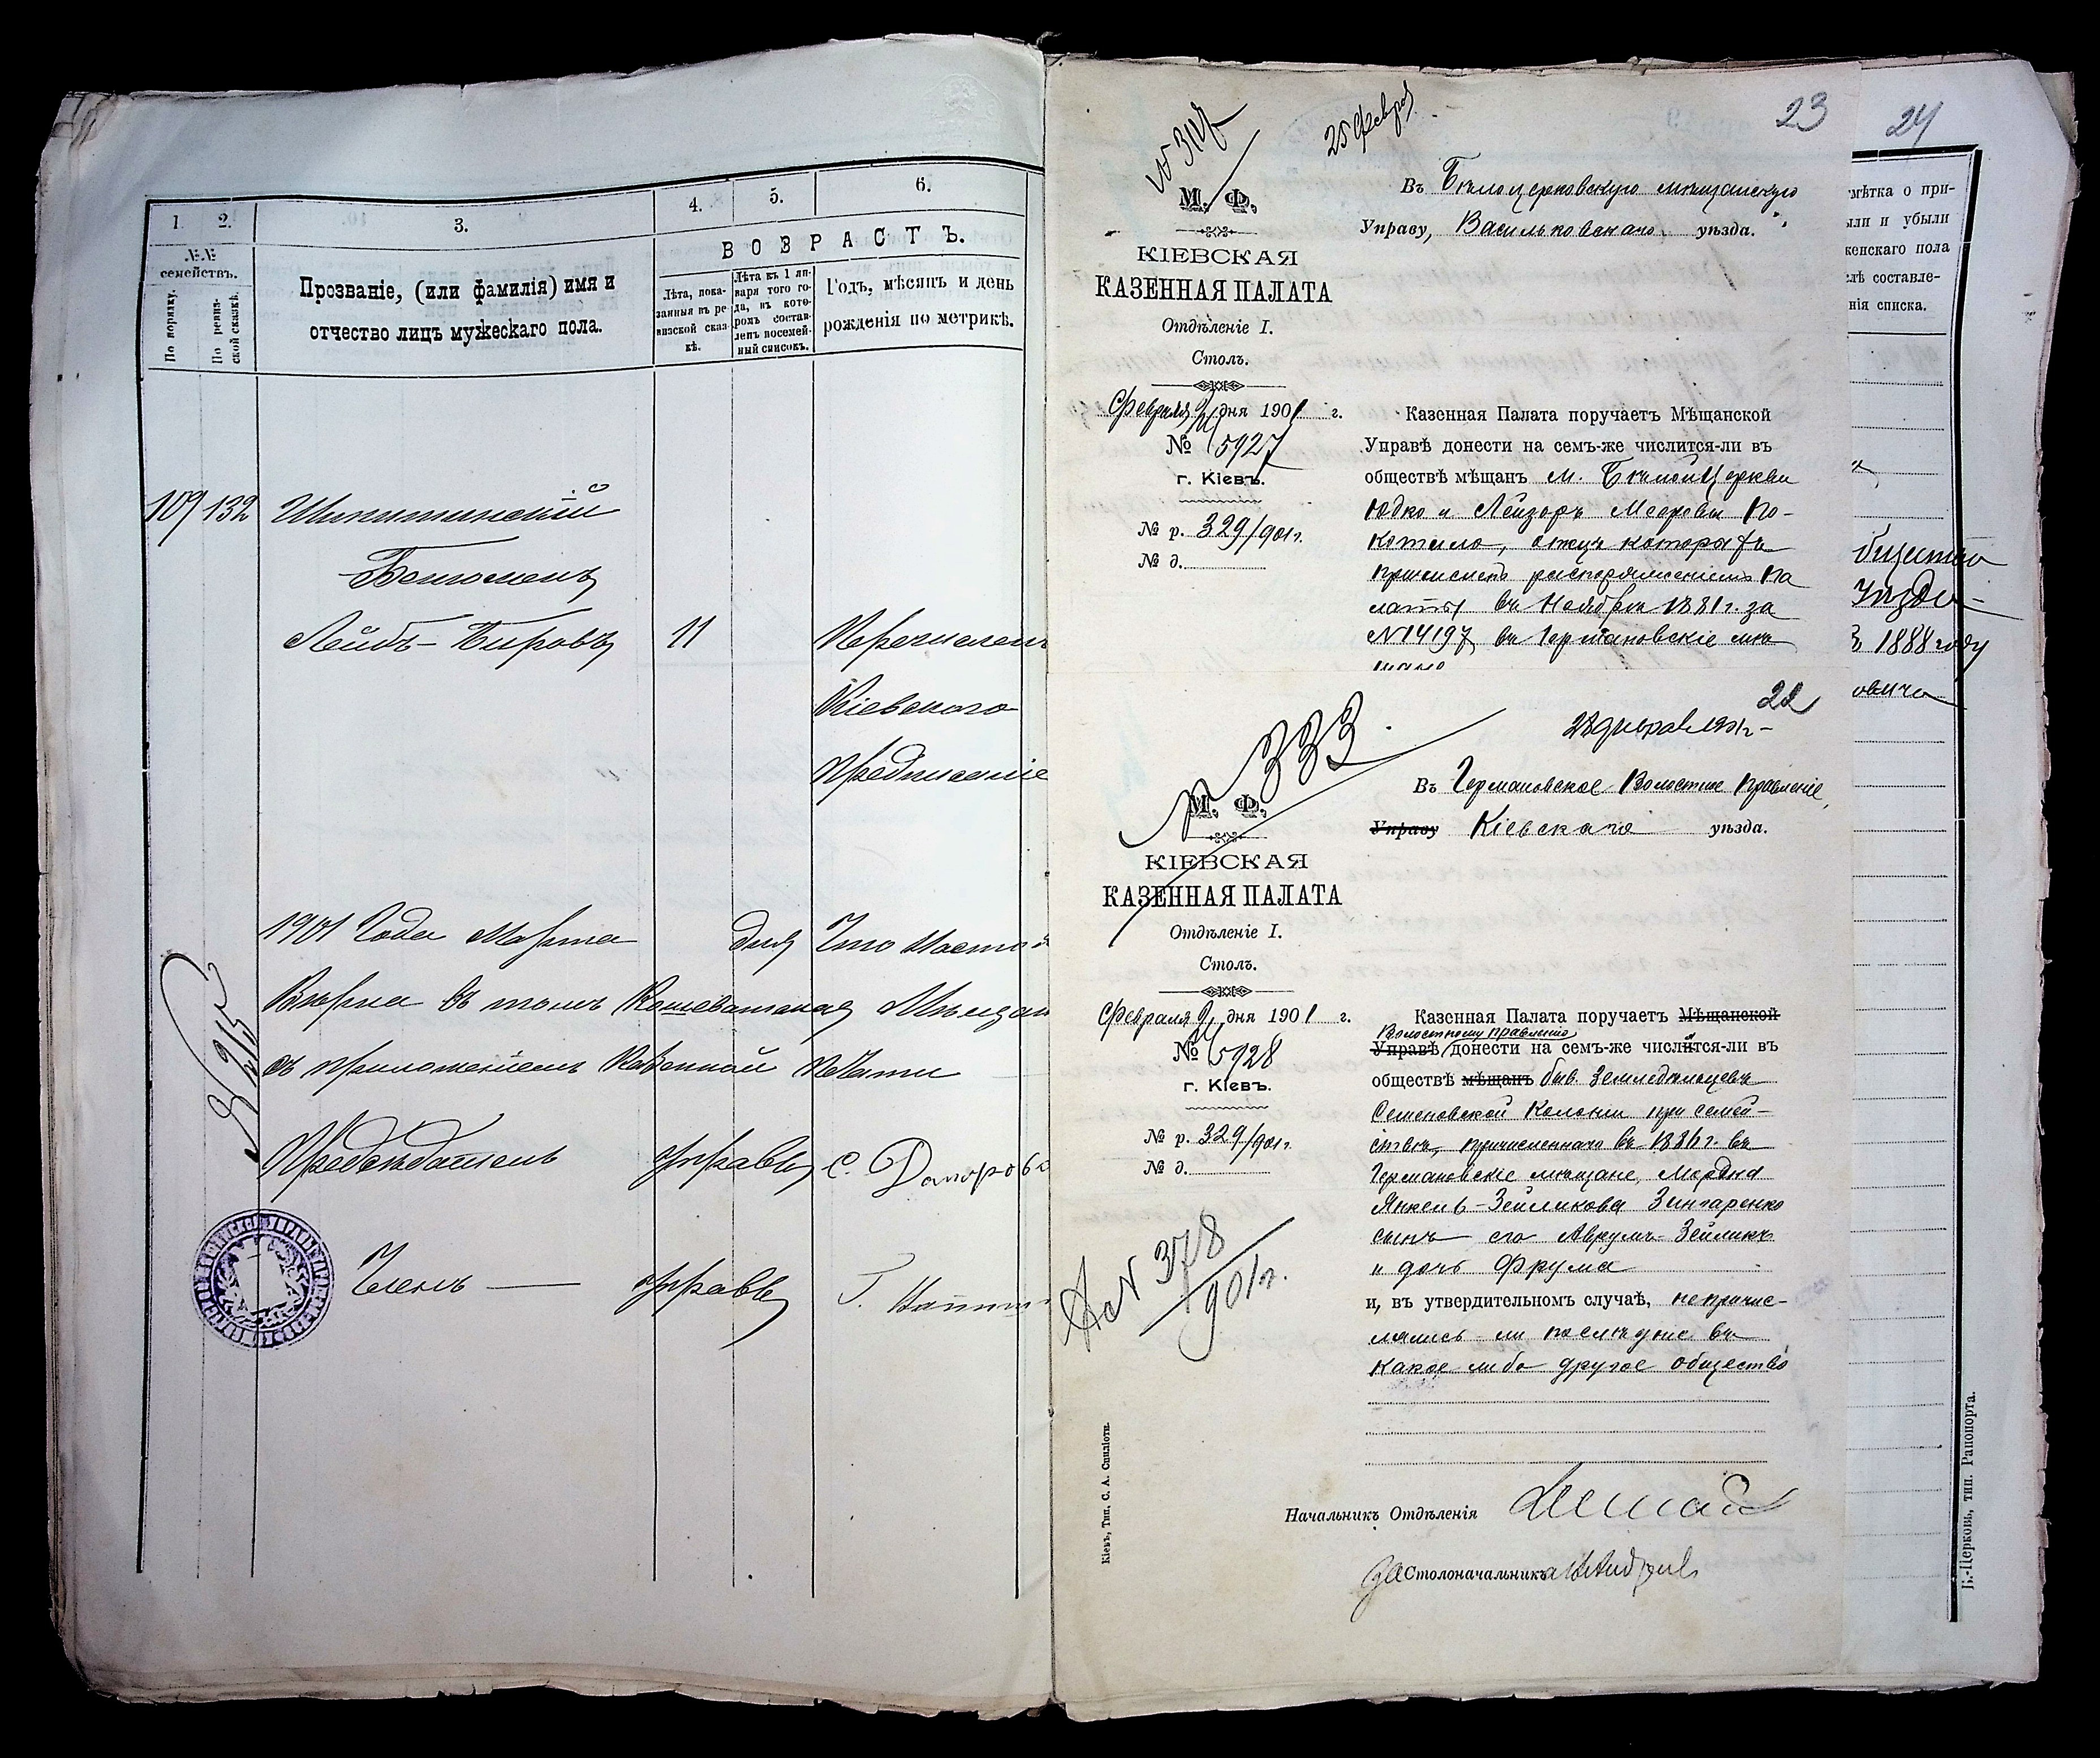 1.
2.
3.
4.
5.
6.
№№ семействъ.
По порядку.
По ревиз-
ской сказкѣ.
Прозваніе, (или фамилія) имя и
отчество лицъ мужескаго пола.
ВОЗРАСТЪ.
Лѣта, пока-
занныя въ ре
визской сказ
кѣ.
Лѣта къ 1 ян-
варя того го-
да, въ кото-
ромъ состав-
ленъ посемей-
ный списокъ.
Годъ, мѣсяцъ и день
рожденія по метрикѣ.
109 132
Лейбъ-
11
Перечисленъ
Кіевскаго
Предписаніе
1901 Года Марта дня Что Насто
Вѣрна въ томъ Кошеватская Мѣщан
съ приложеніемъ Казенной Печати
№ 215
Предсѣдатель Управы С.
Членъ — Управы Г.
23
25 Февр
М. Ф.
КІЕВСКАЯ
КАЗЕННАЯ ПАЛАТА
Отдѣленіе I.
Столъ.
Февраля 21 дня 1901 г.
№ 5927
г. Кіевъ.
№ р. 329/901 г.
№ д.
Въ Бѣлоцерковскую мѣщанскую
Управу, Васильковскаго уѣзда.
Казенная Палата поручаетъ Мѣщанской
Управѣ донести на семъ-же числится-ли въ
обществѣ мѣщанъ м. Бѣлой Церкви
Юдко и Лейзоръ Меоровы Ко-
котило, отецъ которыхъ
причисленъ распоряженіемъ Па
латы въ Ноябрѣ 1881 г. за
№ 14197 въ Германовскіе мѣ
щане
22
28 Февраля 1901 г.
№ 333
М. Ф.
КІЕВСКАЯ
КАЗЕННАЯ ПАЛАТА
Отдѣленіе I.
Столъ.
Февраля 21 дня 1901 г.
№ 5928
г. Кіевъ.
№ р. 329/901 г.
№ д.
№ 378
901 г.
Въ Германовское Волостное Правленіе,
Управу Кіевскаго уѣзда.
Казенная Палата поручаетъ Мѣщанской
Волостному правленію
Управѣ донести на семъ-же числится-ли въ
обществѣ мѣщанъ быв. Земледѣльцевъ
Семеновской Колоніи при семей-
ствѣ, причисленнаго въ 1881 г. въ
Германовскіе мѣщане, Мордка
Янкель-Зейликова Зингаренко
сынъ его Аврумъ-Зейликъ
и дочь Фрума
и, въ утвердительномъ случаѣ, не причис-
лялись-ли послѣдніе въ
какое либо другое общество
Начальникъ Отдѣленія
за Столоначальника
Кіевъ, Тип. С. А. Спиліоти.
24
мѣтка о при-
ыли и убыли
женскаго пола
слѣ составле-
нія списка.
бщество
Уѣзда
1888 году
овича
Б.-Церковь, тип. Рапопорта.